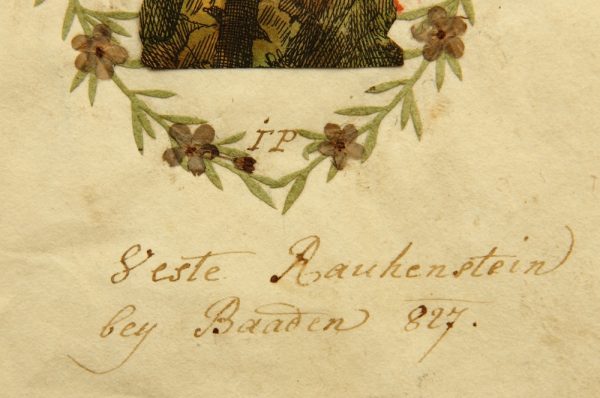 i P
Veste Rauhenstein
bey Baaden 827.